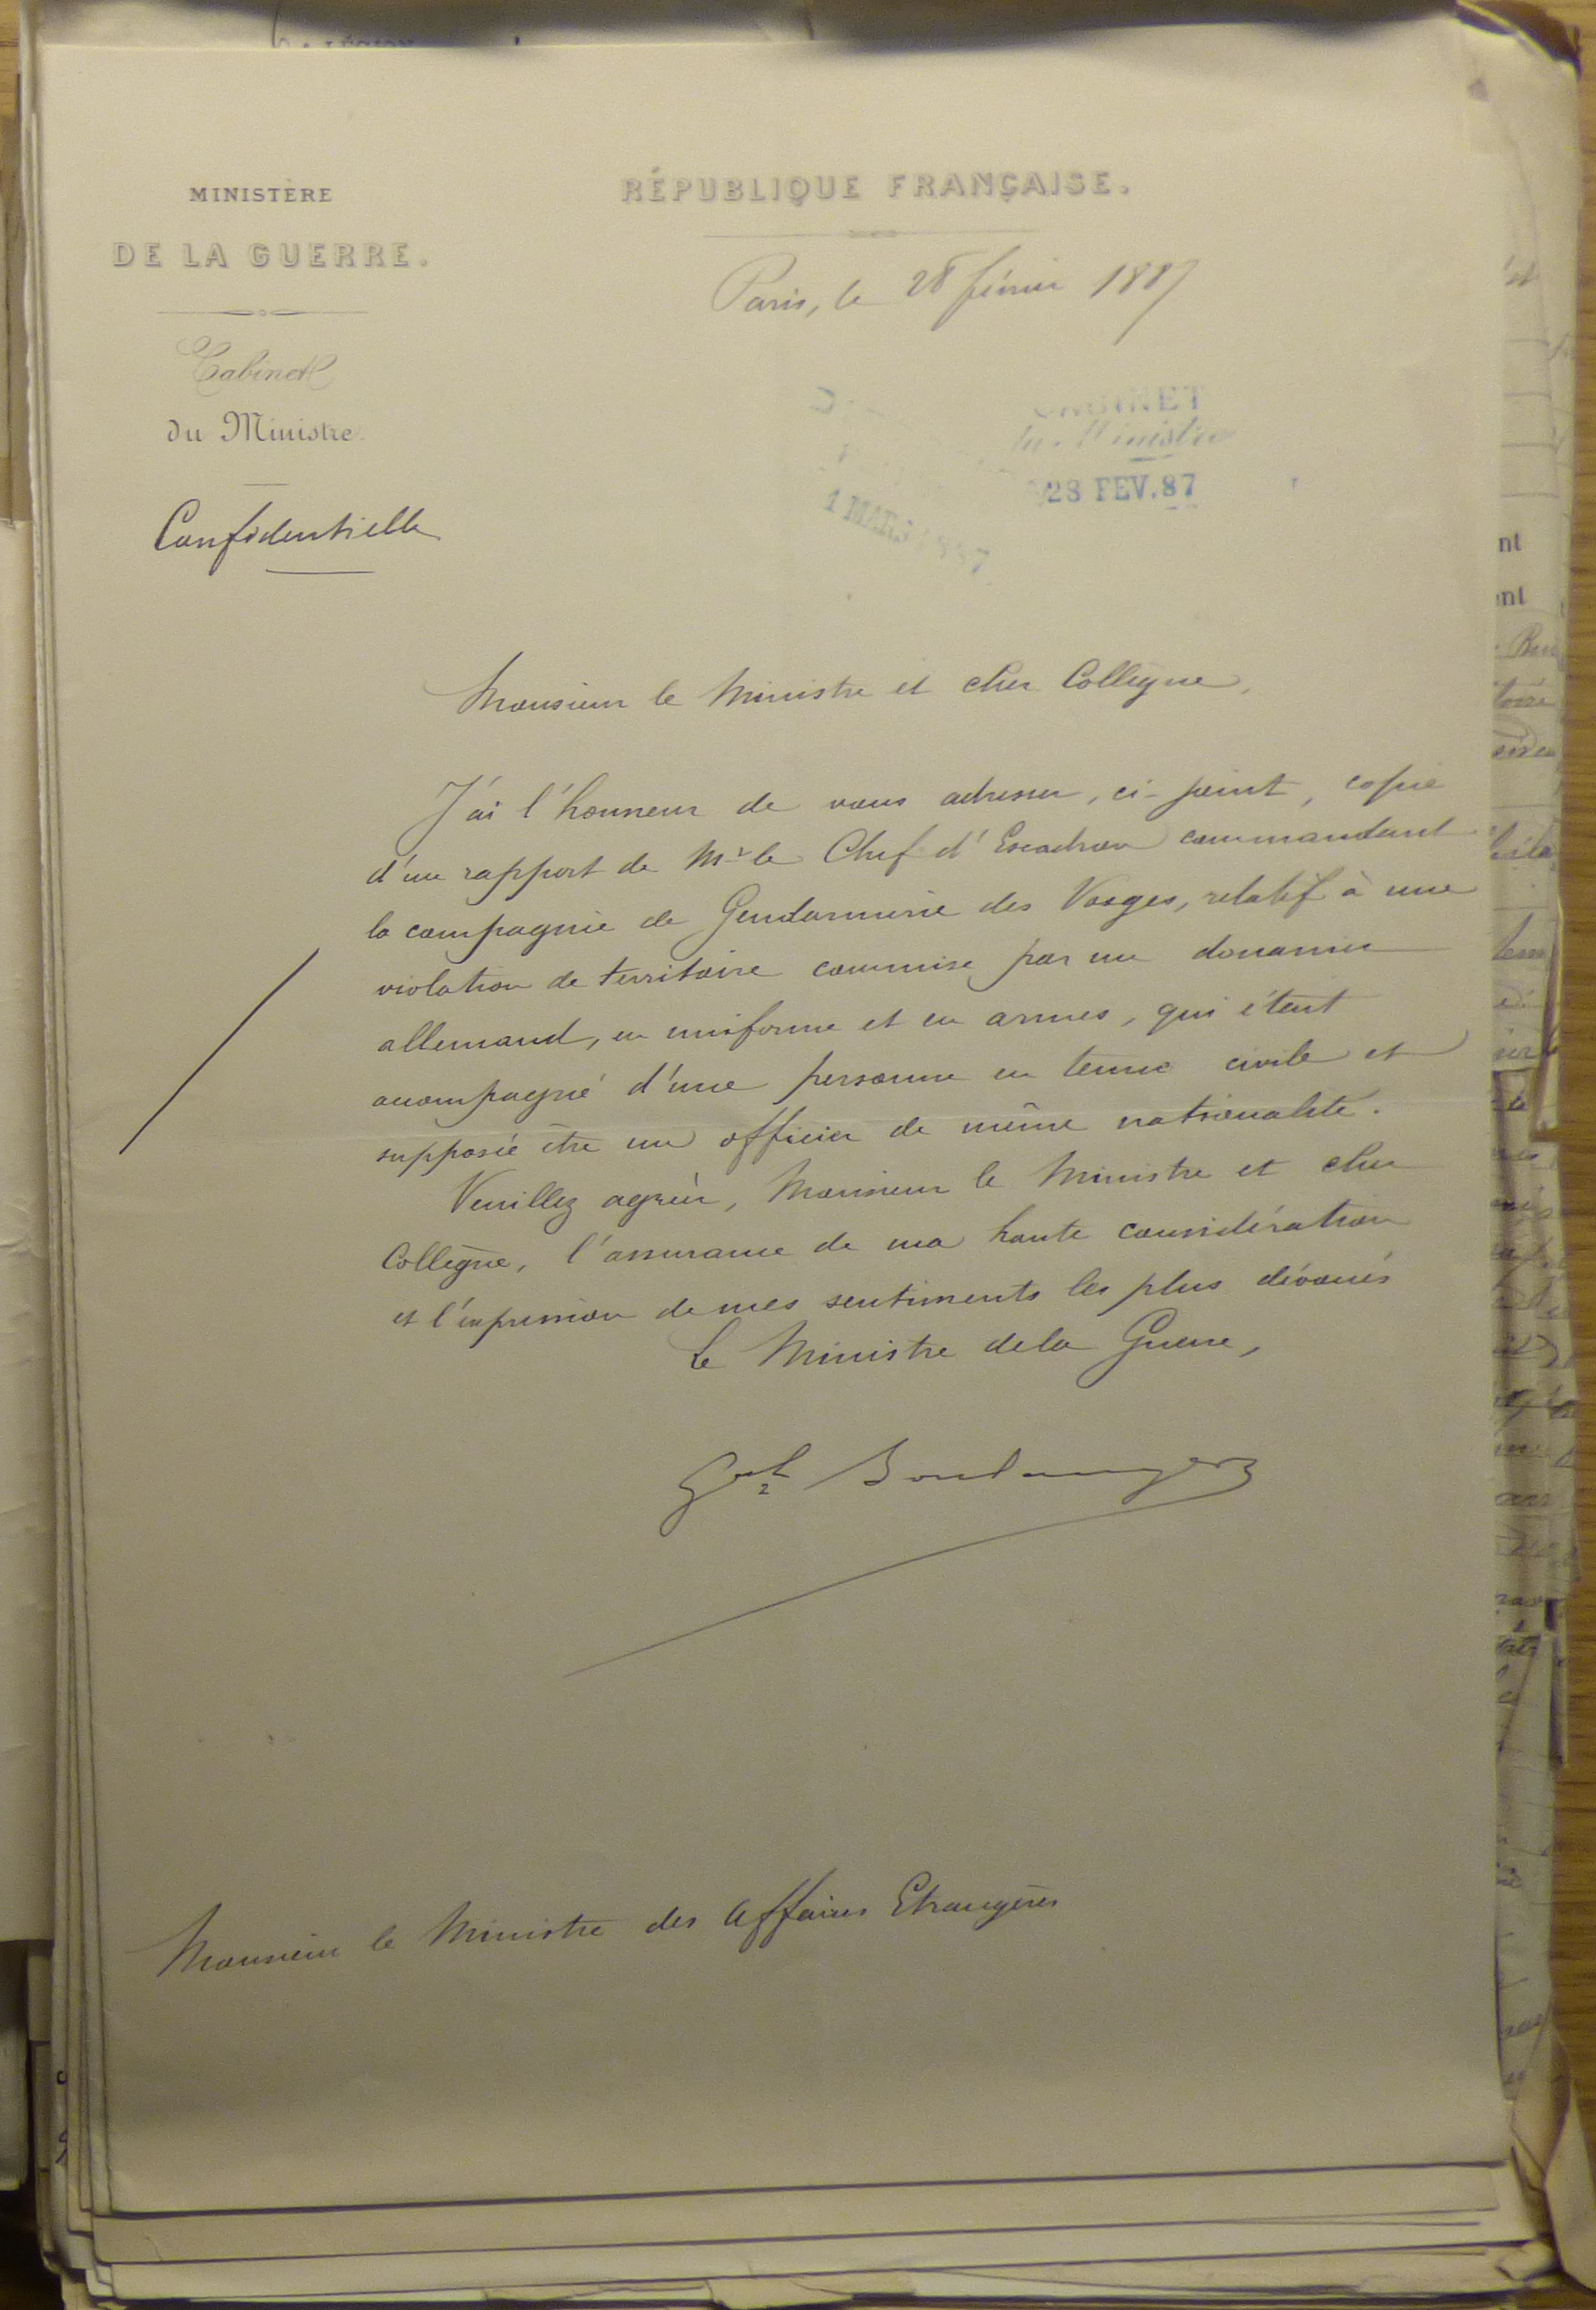 MINISTÈRE
DE LA GUERRE.
Cabinet
du Ministre.
Confidentielle
RÉPUBLIQUE FRANÇAISE.
Paris, le 28 février 1887
CABINET
du Ministre
28 FEV. 87
1 MARS 1887
Monsieur le Ministre et cher Collègue,
J'ai l'honneur de vous adresser, ci-joint, copie
d'un rapport de Mr le Chef d'Escadron commandant
la compagnie de Gendarmerie des Vosges, relatif à une
violation de territoire commise par un douanier
allemand, en uniforme et en armes, qui était
accompagné d'une personne en tenue civile et
supposée être un officier de même nationalité.
Veuillez agréer, Monsieur le Ministre et cher
Collègue, l'assurance de ma haute considération
et l'expression de mes sentiments les plus dévoués
Le Ministre de la Guerre,
Gal Boulanger
Monsieur le Ministre des Affaires Etrangères